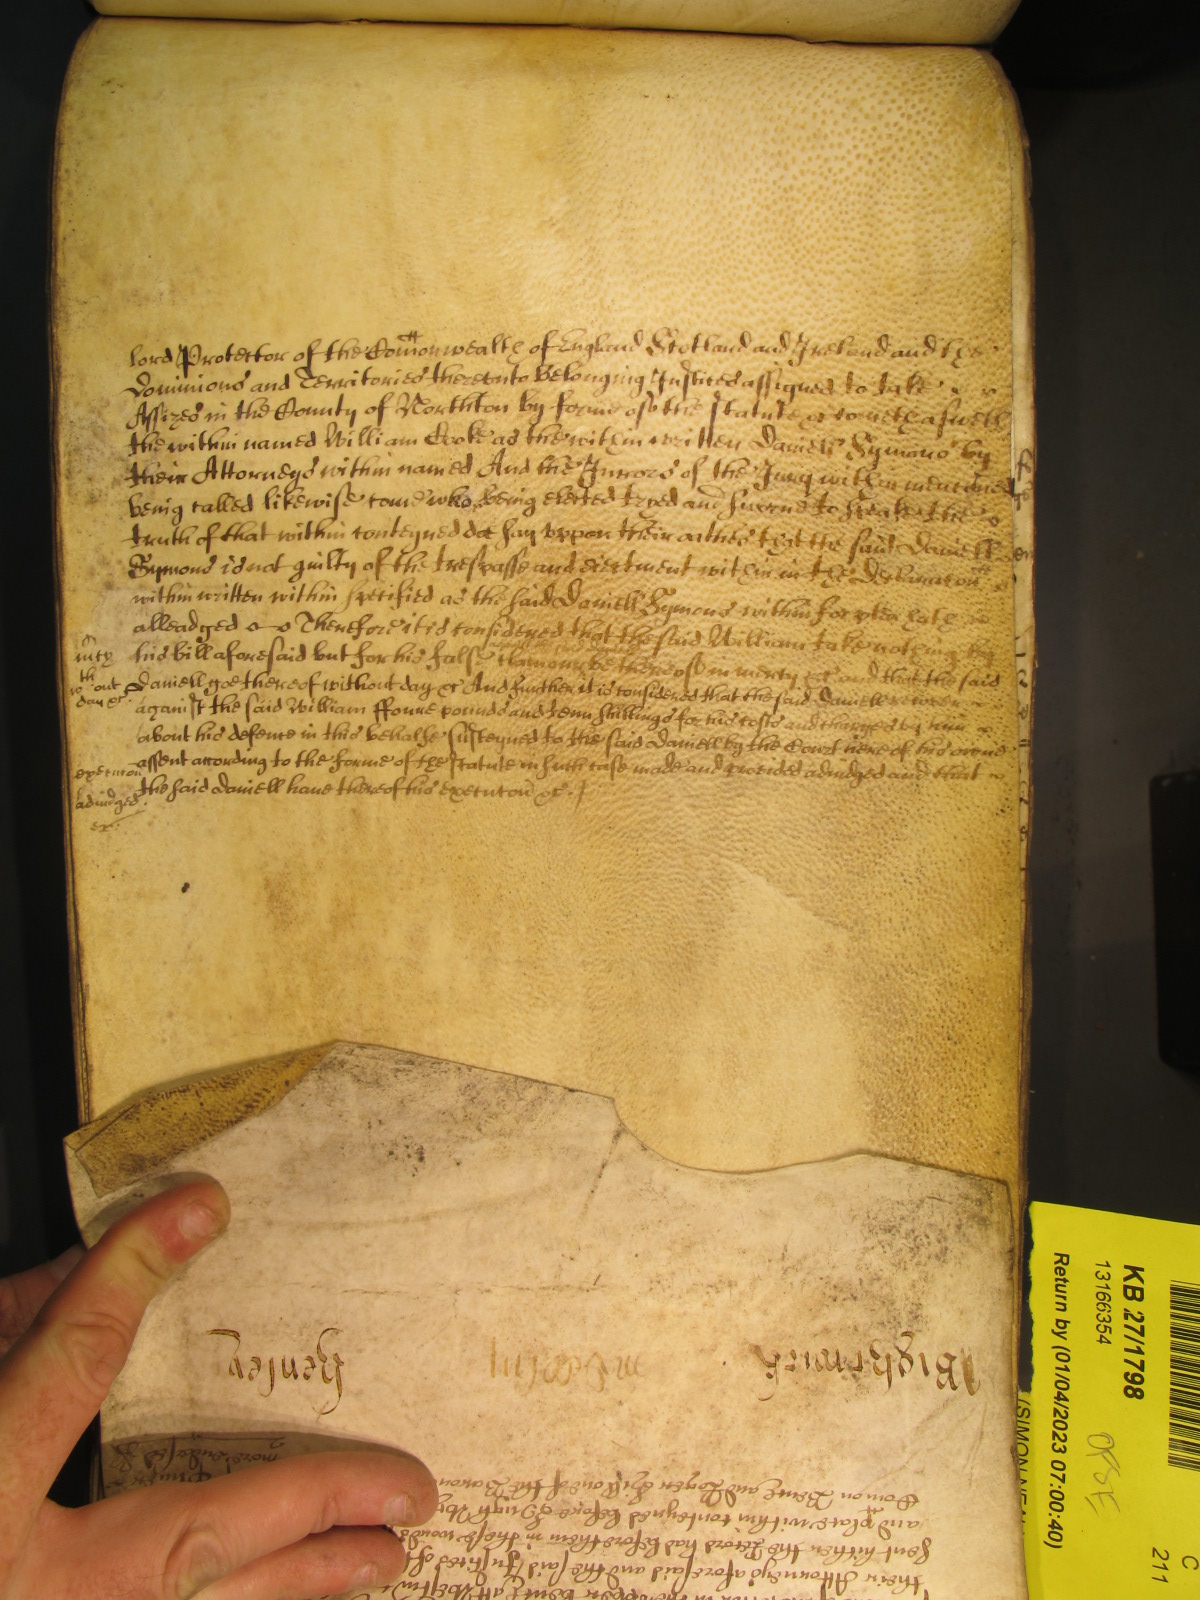 lord Protector of the Com̄onwealth of England Scotland and Ireland and the
Dominions and Territories thereunto belonging Justices assigned to take
Assizes in the County of Northton by forme of the statute &c cometh aswell
the within named William Cooke as the within written Daniell Symons by
their Attorneys within named And the Jurors of the Jury within mentioned
being called likewise come who being elected tryed and sworne to speake the
truth of that within conteyned doe say uppon their oathes that the said Daniell
Symons is not guilty of the trespasse and eiectment within in the Declaration
within written within specified as the said Daniell Symons within for plea hath
alleadged Therefore it is considered that the said William take nothing by
his bill aforesaid but for his false clamour be thereof in mercy &c and that the said
Daniell goe thereof without day &c And further it is considered that the said Daniell recover
against the said William ffoure pounds and tenn shillings for his costs and charges by him
about his defence in this behalfe susteyned to the said Daniell by the Court here of his owne
assent according to the forme of the statute in such case made and provided adiudged and that
the said Daniell have thereof his execution &c.
m̄cy
wthout
day &c
execution
adiudged
&c
Wightwick
Henley
Common Bench and Roger Hill one of the Barons
and place within conteyned before Hugh
sent hither the Record had before them in these words
their Attorneys aforesaid and the said Justices of
KB 27/1798
13166354
Return by (01/04/2023 07:00:40)
C
211